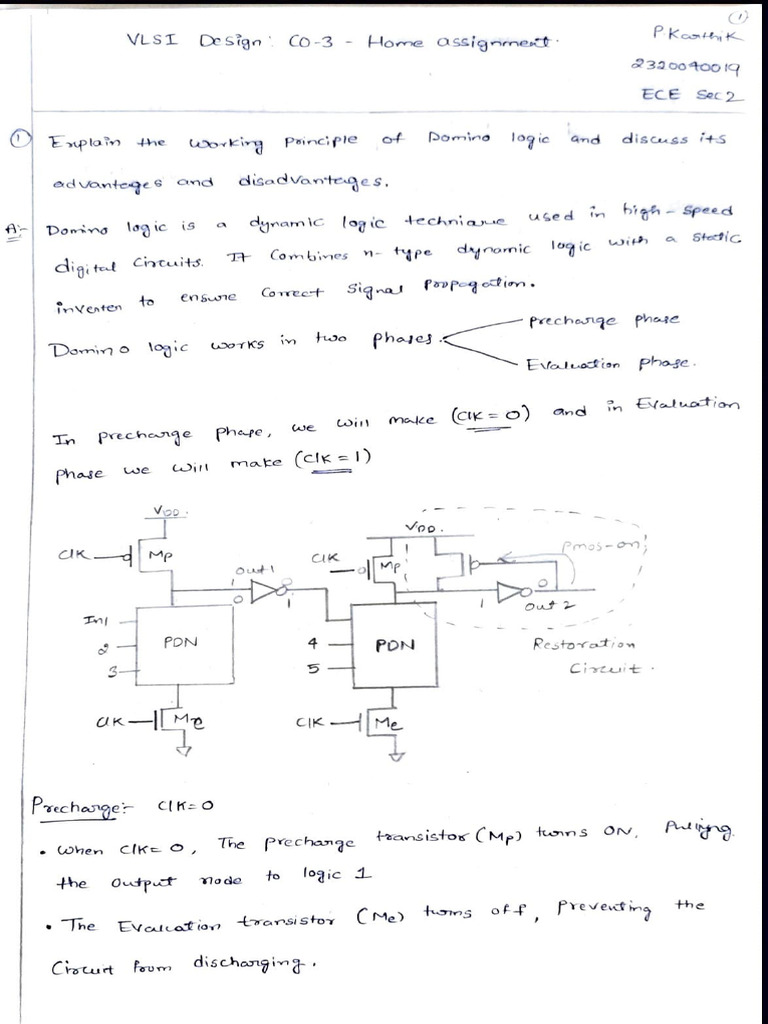 1
VLSI Design: CO-3 - Home assignment.
P.Karthik
2320040019
ECE Sec 2
1 Explain the working principle of Domino logic and discuss its
advanteges and disadvanteges.
A:- Domino logic is a dynamic logic technique used in high-speed
digital Circuits. It Combines n-type dynamic logic with a static
inverter to ensure Correct Signal propogation.
Domino logic works in two phases.
precharge phase
Evaluation phase.
In precharge phase, we will make (Clk = 0) and in Evaluation
phase we will make (Clk = 1)
VDD.
Clk Mp
out1
1 0
0 1
In1
2
3
PDN
Clk Me
VDD.
Clk Mp
Pmos-on;
1 0
out 2
4
5
PDN
Restoration
Circuit.
Clk Me
Precharge:- Clk=0
• When Clk= 0, The precharge transistor (Mp) turns ON, Pulling
the output node to logic 1
• The Evaluation transistor (Me) turns off, preventing the
Circuit from discharging.